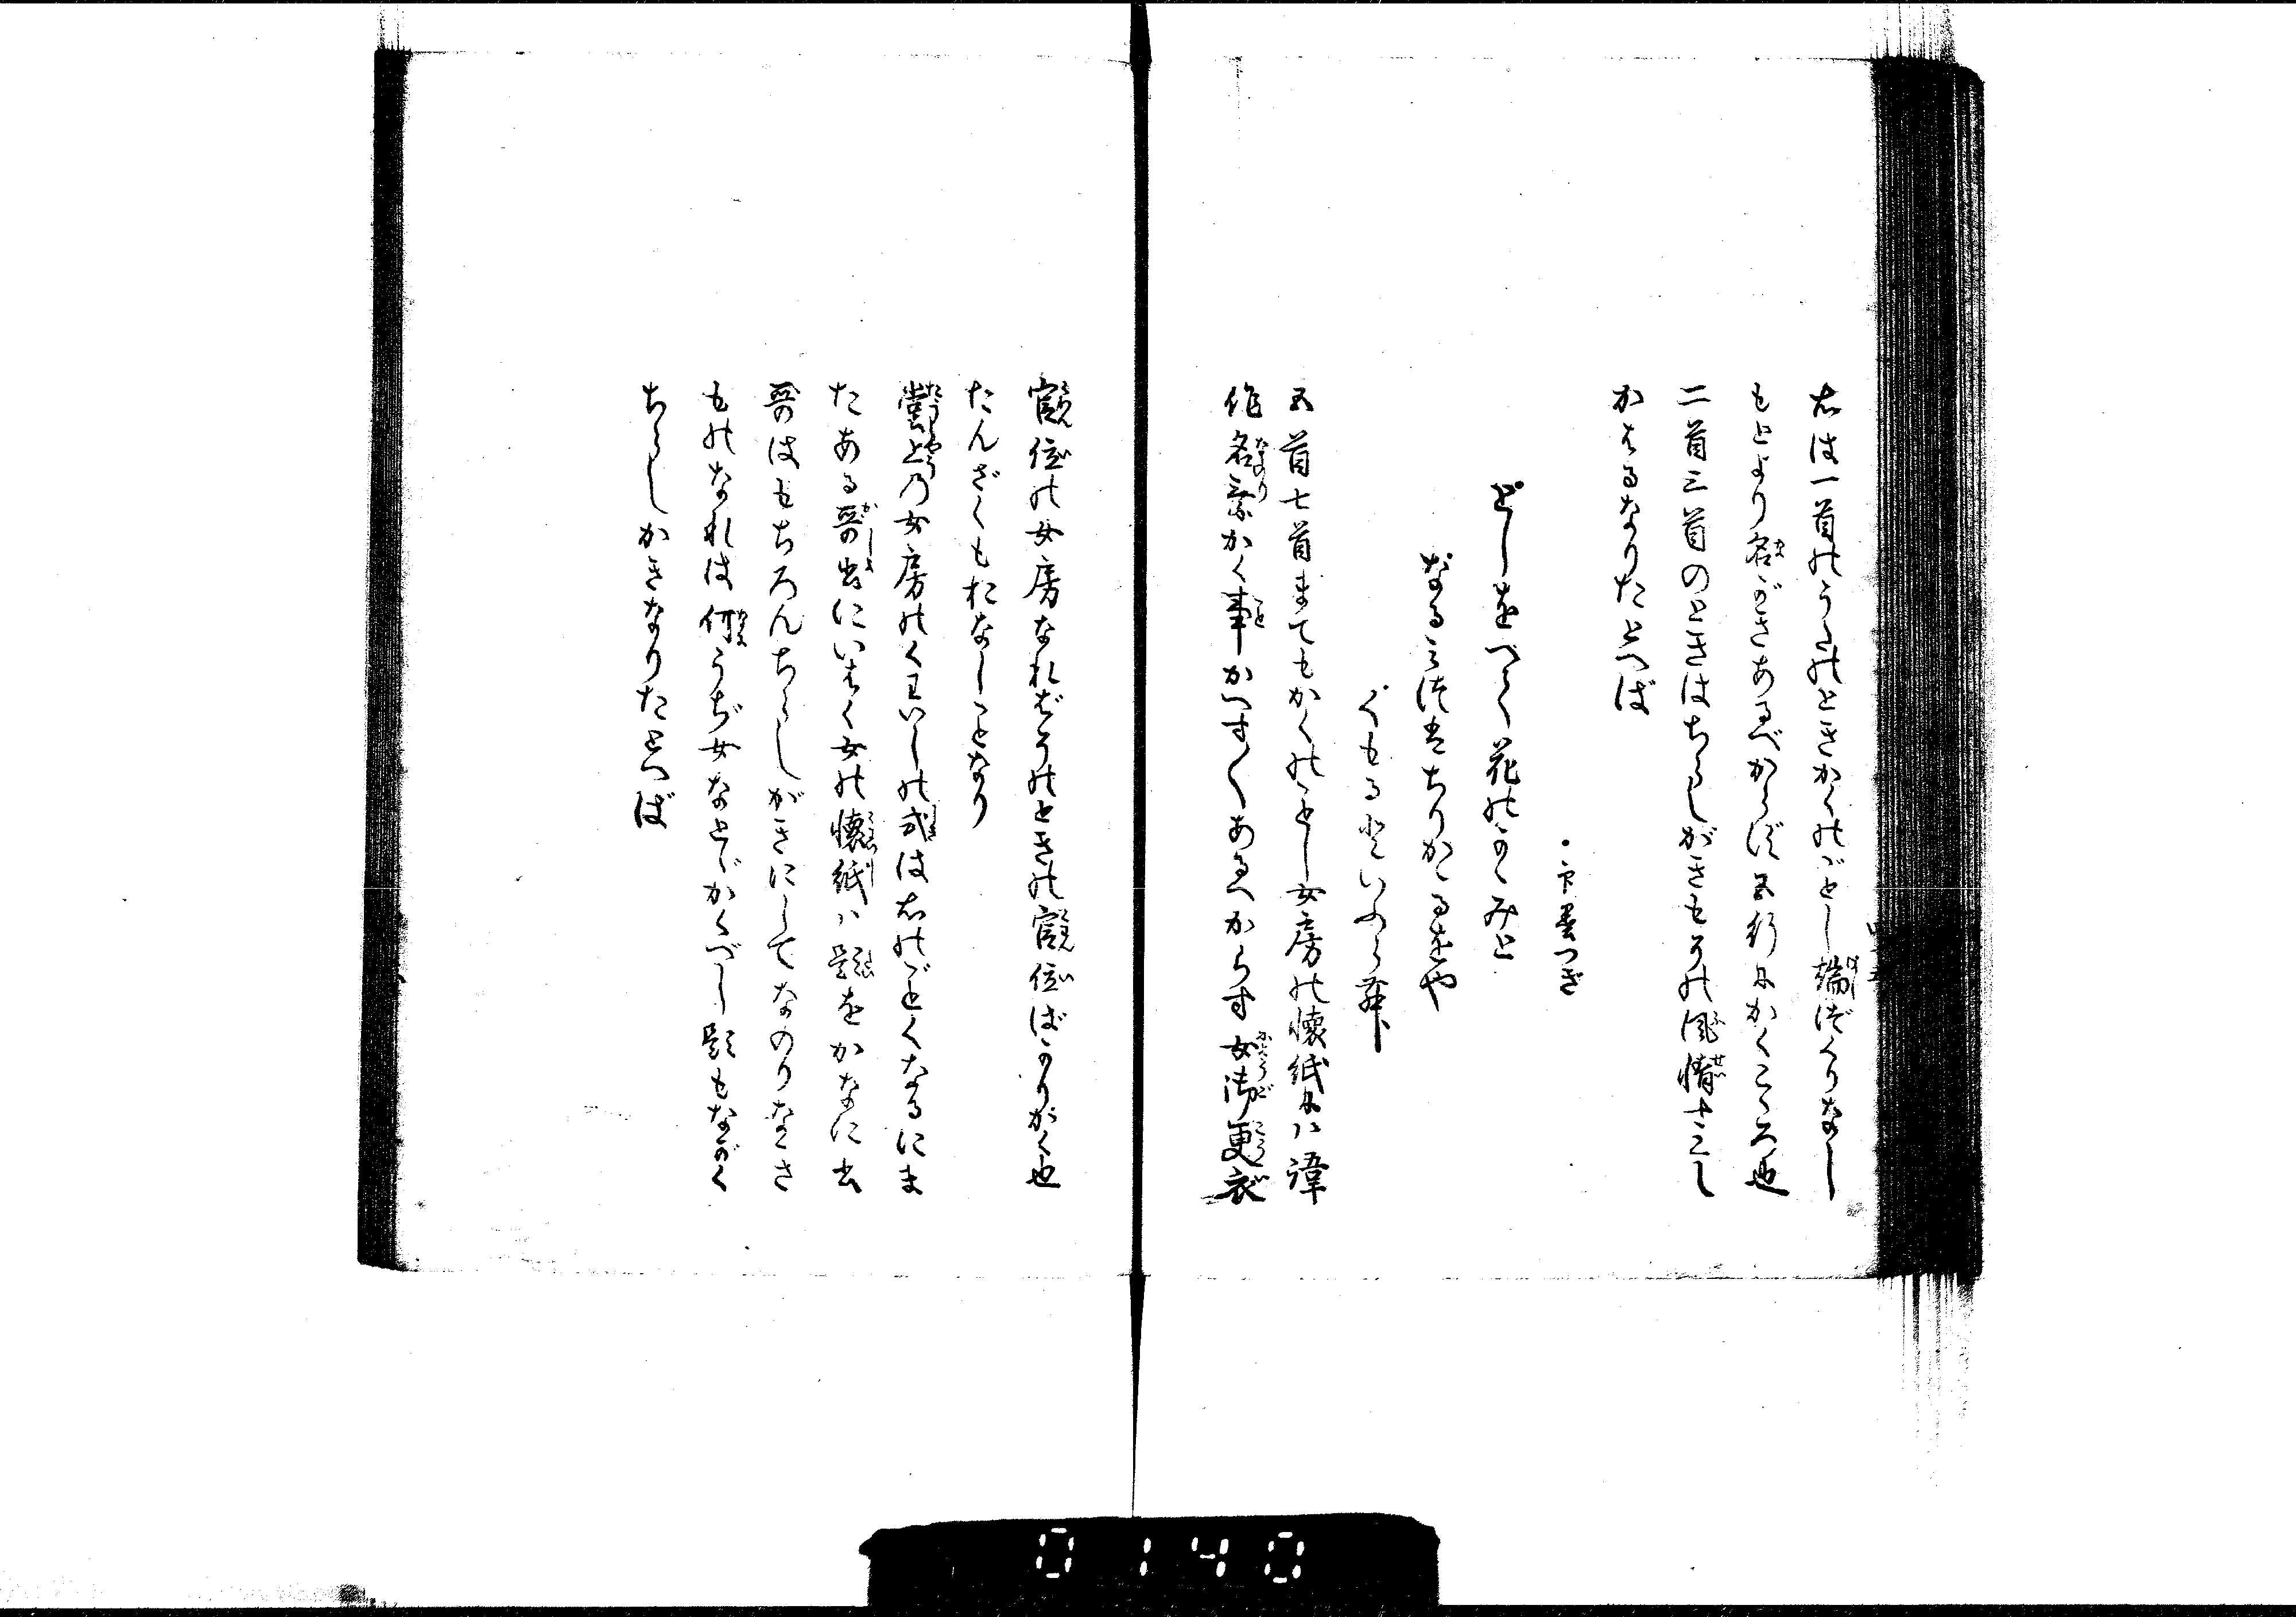 右は一首のうたのときかくのごとし端づくりなし
もとより名がきあるべからず五行にかくこころ也
二首三首のときはちらしがきもその風情すこし
かはるなりたとへば
・卩墨つぎ
としをへて花のかゝみと
なるみづはちりかゝるをや
くもるといふらん
五首七首まてもかくのごとし女房の懐紙には諱
作名乗かく事かへす〳〵あるへからす女御更衣
官位の女房なれどそのときの官位ばかりがく也
たんざくもおなしことなり
堂上の女房のくわいしの式は右のごとくなるにま
たある哥書にいはく女の懐紙は題をかなに書
哥はもちろんちらしがきにしてなのりなくさ
ものなれは何うぢ女などゝかくべし題もながく
ちらしかきなりたとへば
0140